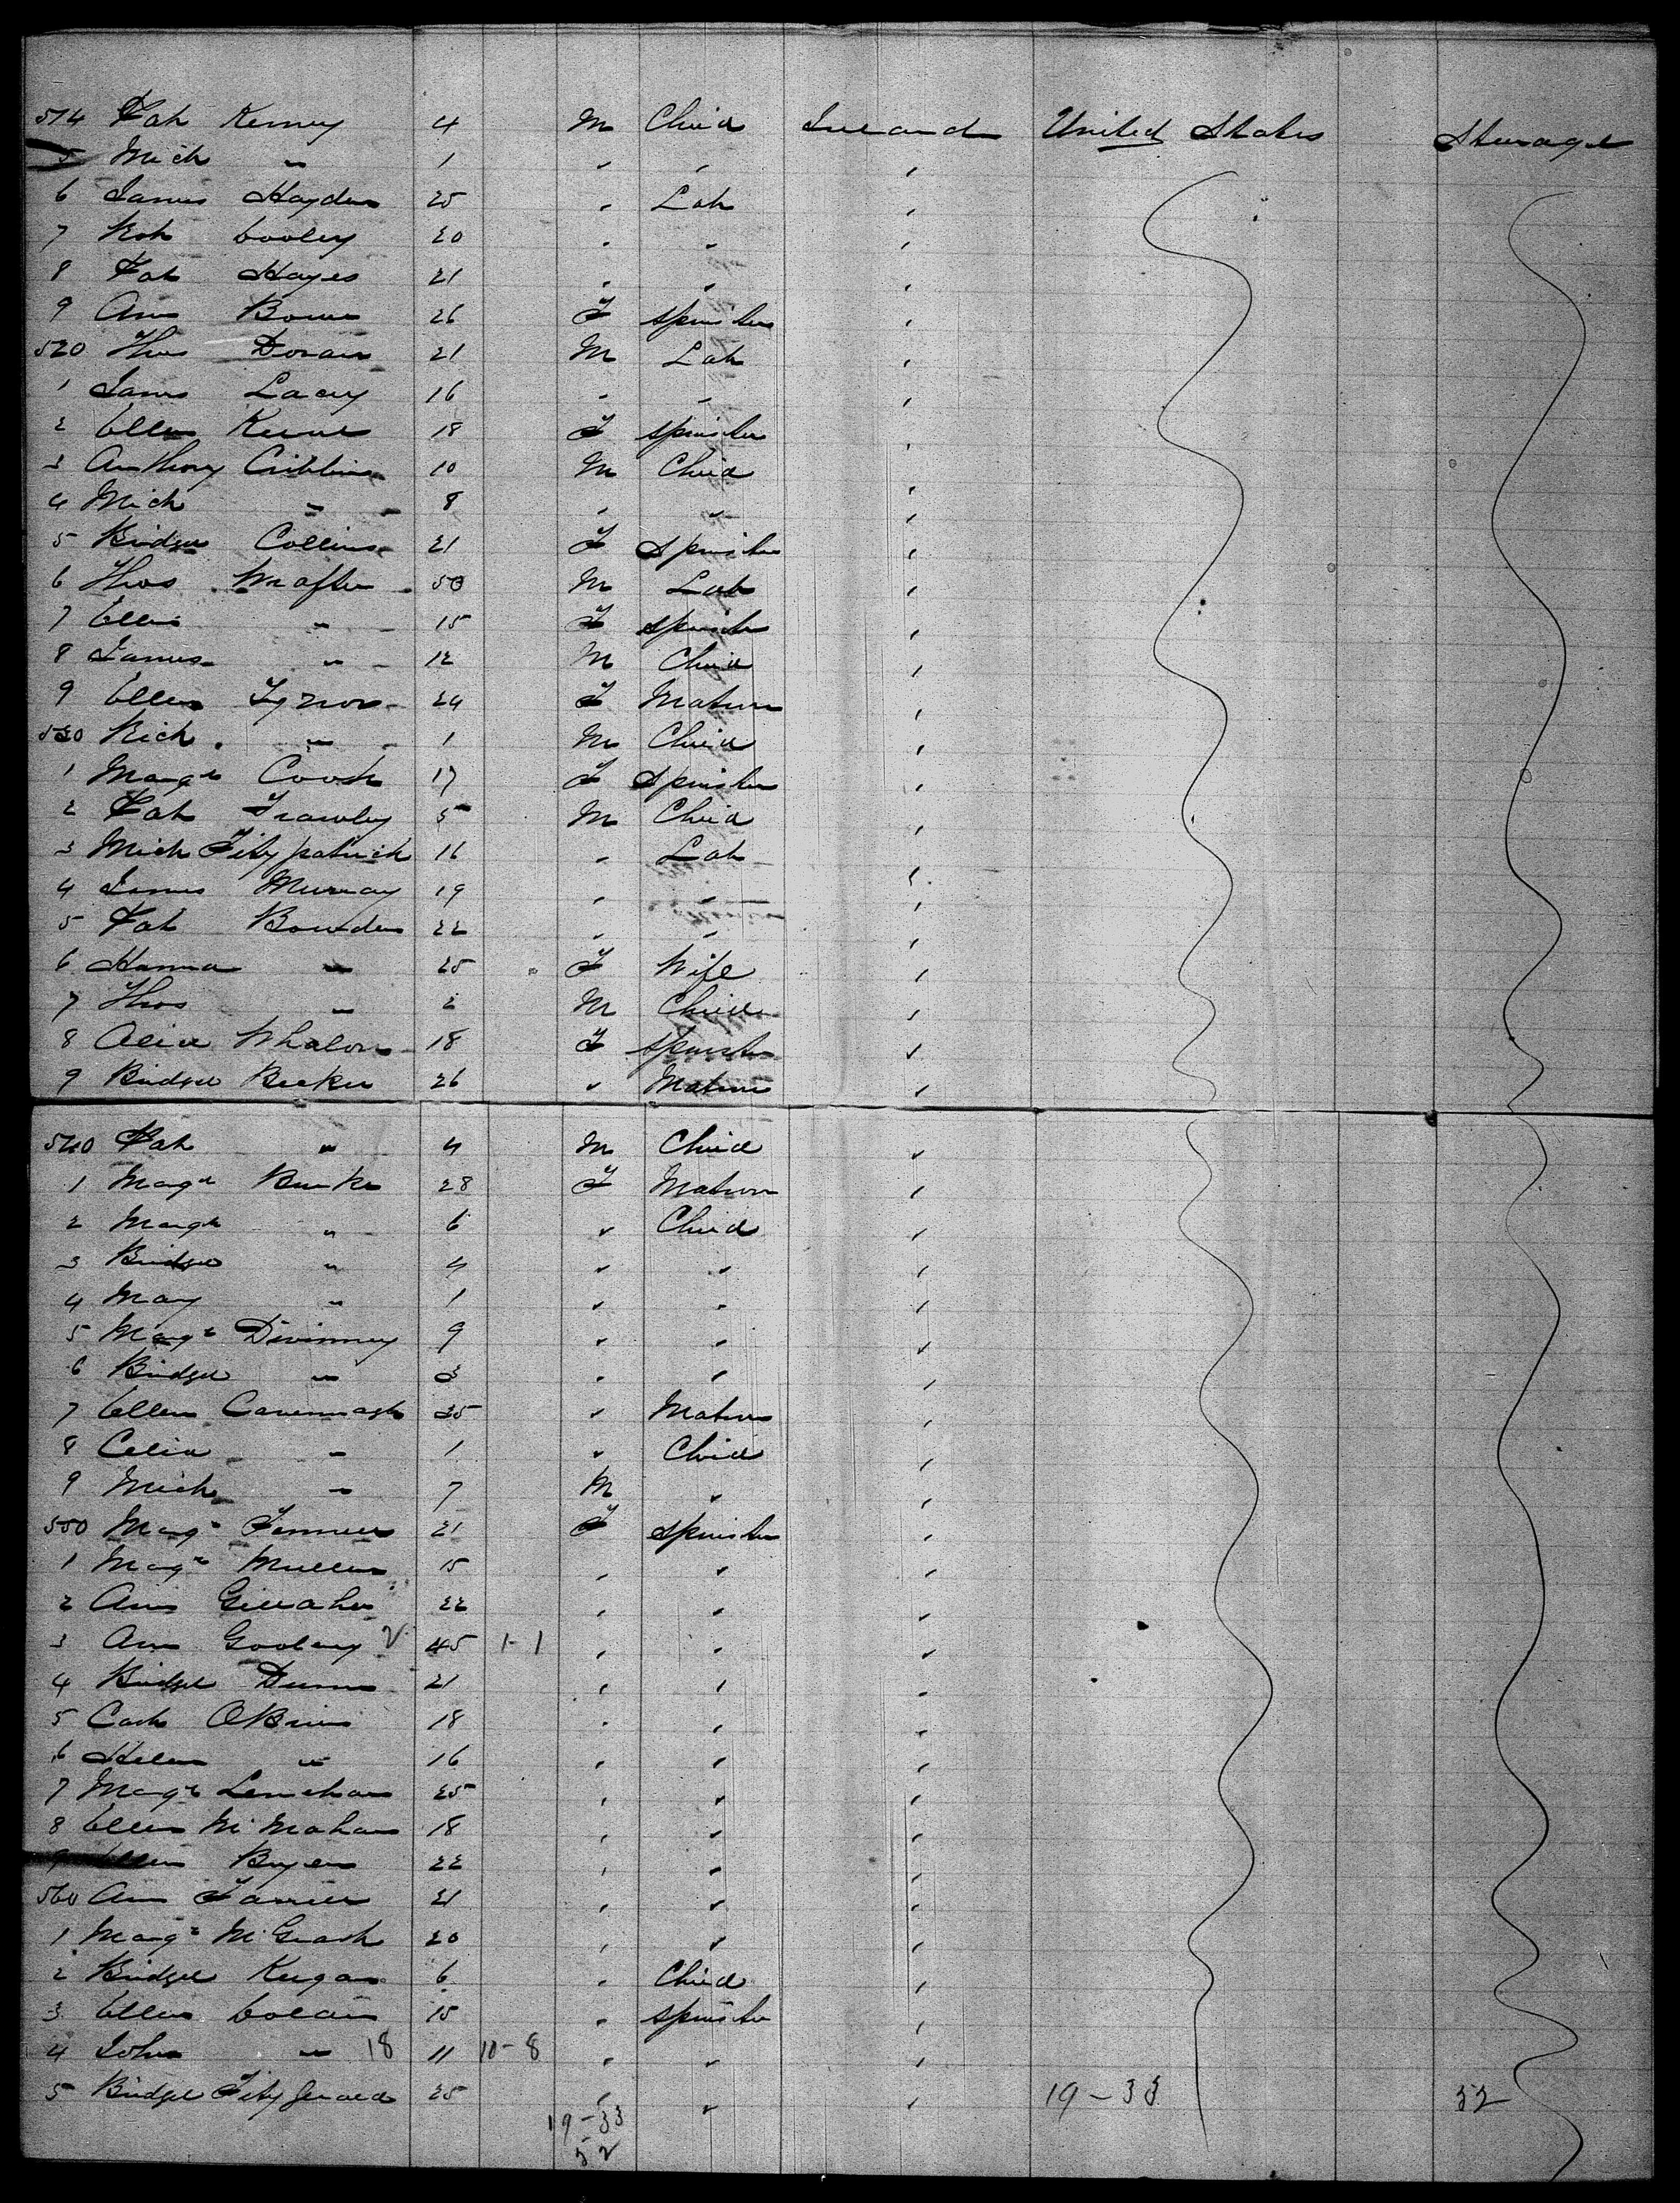 514 Pat Kenny 4 M Child Ireland United States Steerage
5 Mich " 1 " " "
6 James Hayden 25 " Lab "
7 Rob Cooley 20 " " "
8 Pat Hayes 21 " " "
9 Ann Bowe 26 F Spinster "
520 Thos Doran 21 M Lab "
1 James Lacey 16 " " "
2 Ellen 18 F Spinster "
3 Anthony Cribbin 10 M Child "
4 Mich " 8 " " "
5 Bridget Collins 21 F Spinster "
6 Thos 50 M Lab "
7 Ellen " 15 F Spinster "
8 James " 12 M Child "
9 Ellen 24 F Matron "
530 Rich " 1 M Child "
1 Margt 17 F Spinster "
2 Pat Frawley 5 M Child "
3 Mich Fitzpatrick 16 " Lab "
4 James Murray 19 " " "
5 Pat Bowden 22 " " "
6 Hanna " 25 F Wife "
7 Thos " 2 M Child "
8 Alice Whalon 18 F Spinster "
9 Bridget Becker 26 " Matron "
540 Pat " 4 M Child "
1 Margt Burke 28 F Matron "
2 Margt " 6 " Child "
3 Bridget " 4 " " "
4 Mary " 1 " " "
5 Margt Divinney 9 " " "
6 Bridget " 3 " " "
7 Ellen Cavennagh 35 " Matron "
8 Celia " 1 " Child "
9 Mich " 7 M " "
550 Margt 21 F Spinster "
1 Margt Mullen 15 " " "
2 Ann 22 " " "
3 Ann 45 1-1 " " "
4 Bridget Dunn 21 " " "
5 Cath OBrien 18 " " "
6 Helen " 16 " " "
7 Margt Lenehan 25 " " "
8 Ellen McMahon 18 " " "
9 Ellen 22 " " "
560 Ann 21 " " "
1 Margt McGrath 20 " " "
2 Bridget Keegan 6 " Child "
3 Ellen 15 " Spinster "
4 John " 18 11 10-8 " " "
5 Bridget Fitzgerald 25 " " " 19-33 52
19-33
52